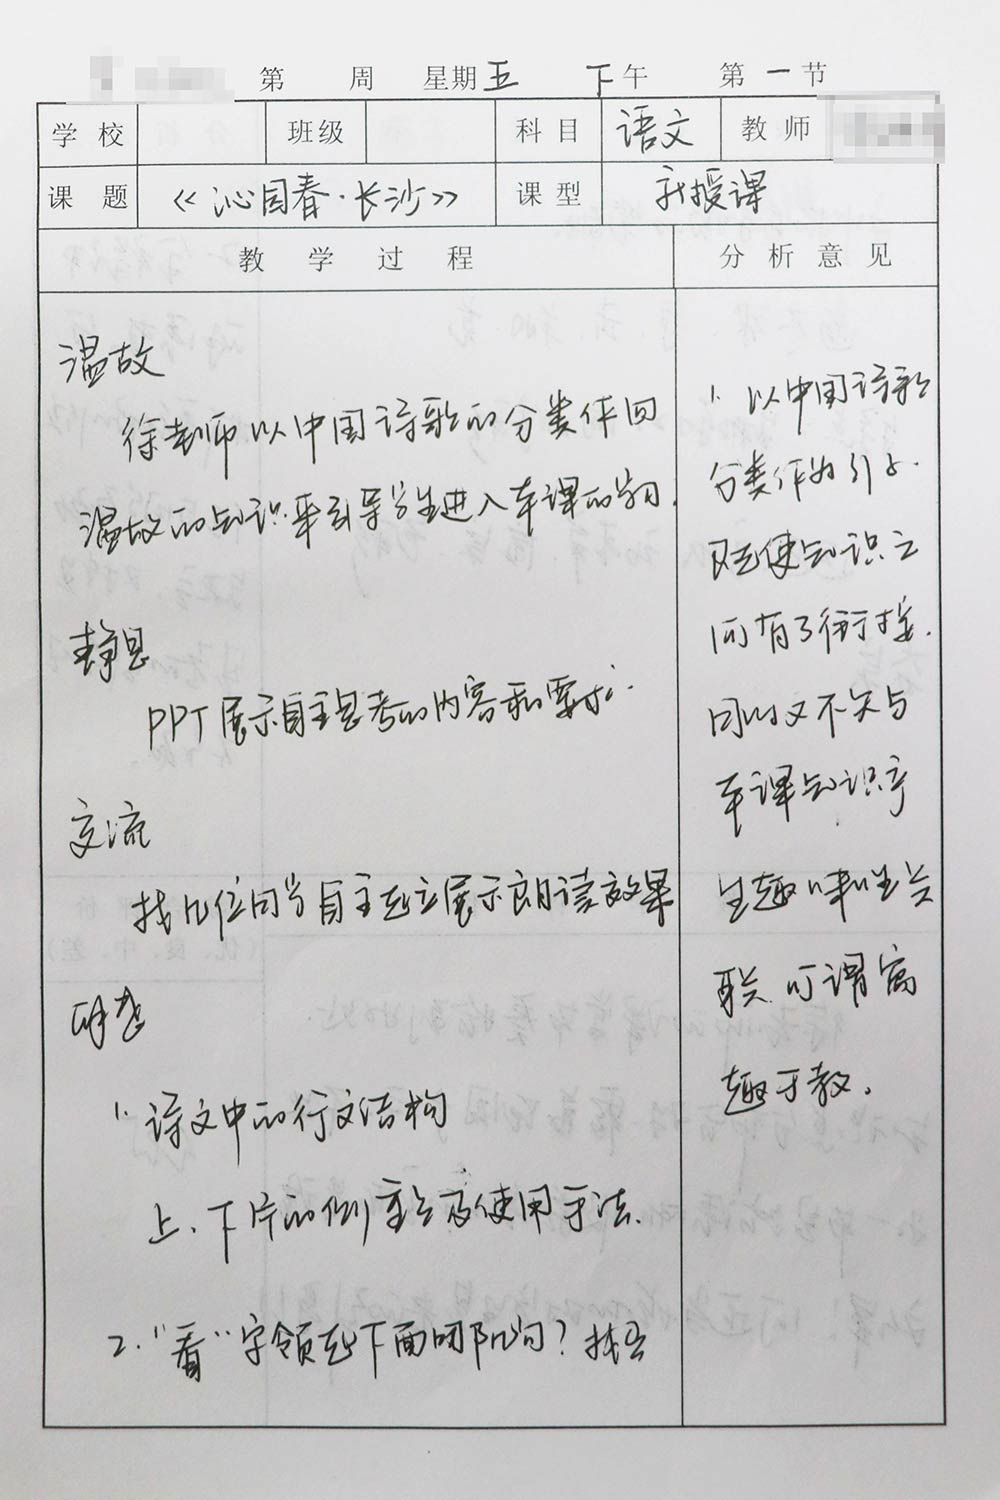 第 周 星期五 下午 第一节
学校 班级 科目 语文 教师
课题 《沁园春·长沙》 课型 新授课
教学过程 分析意见
温故
徐老师以中国诗歌的分类作回
温故的知识来引导学生进入本课的学习.
静思
PPT展示自主思考的内容和要求.
交流
找几位同学自主起立展示朗读效果
研造
1. 诗文中的行文结构
上、下片的侧重点及使用手法.
2. "看"字领起下面哪几句? 找出
1. 以中国诗歌
分类作为引子.
既使知识之
间有了衔接.
同时又不失与
本课知识产
生趣味性关
联. 可谓寓
趣于教.